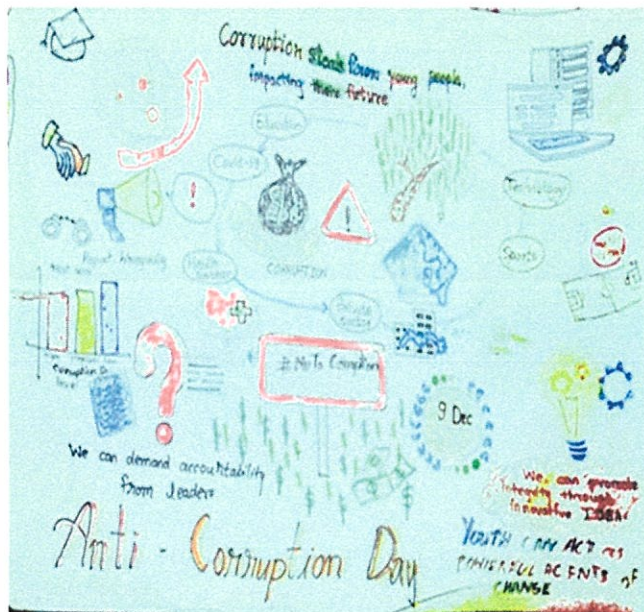 Corruption steals from young people,
impacting their future
Education
Covid-19
Technology
!
!
Sports
Report
CORRUPTION
Health
Private
Sector
Corruption
level
# No To Corruption
9 Dec
?
We can demand accountability
from leaders
We can promote
Integrity through
innovative IDEAS
Anti - Corruption Day
YOUTH CAN ACT as
POWERFUL AGENTS of
CHANGE